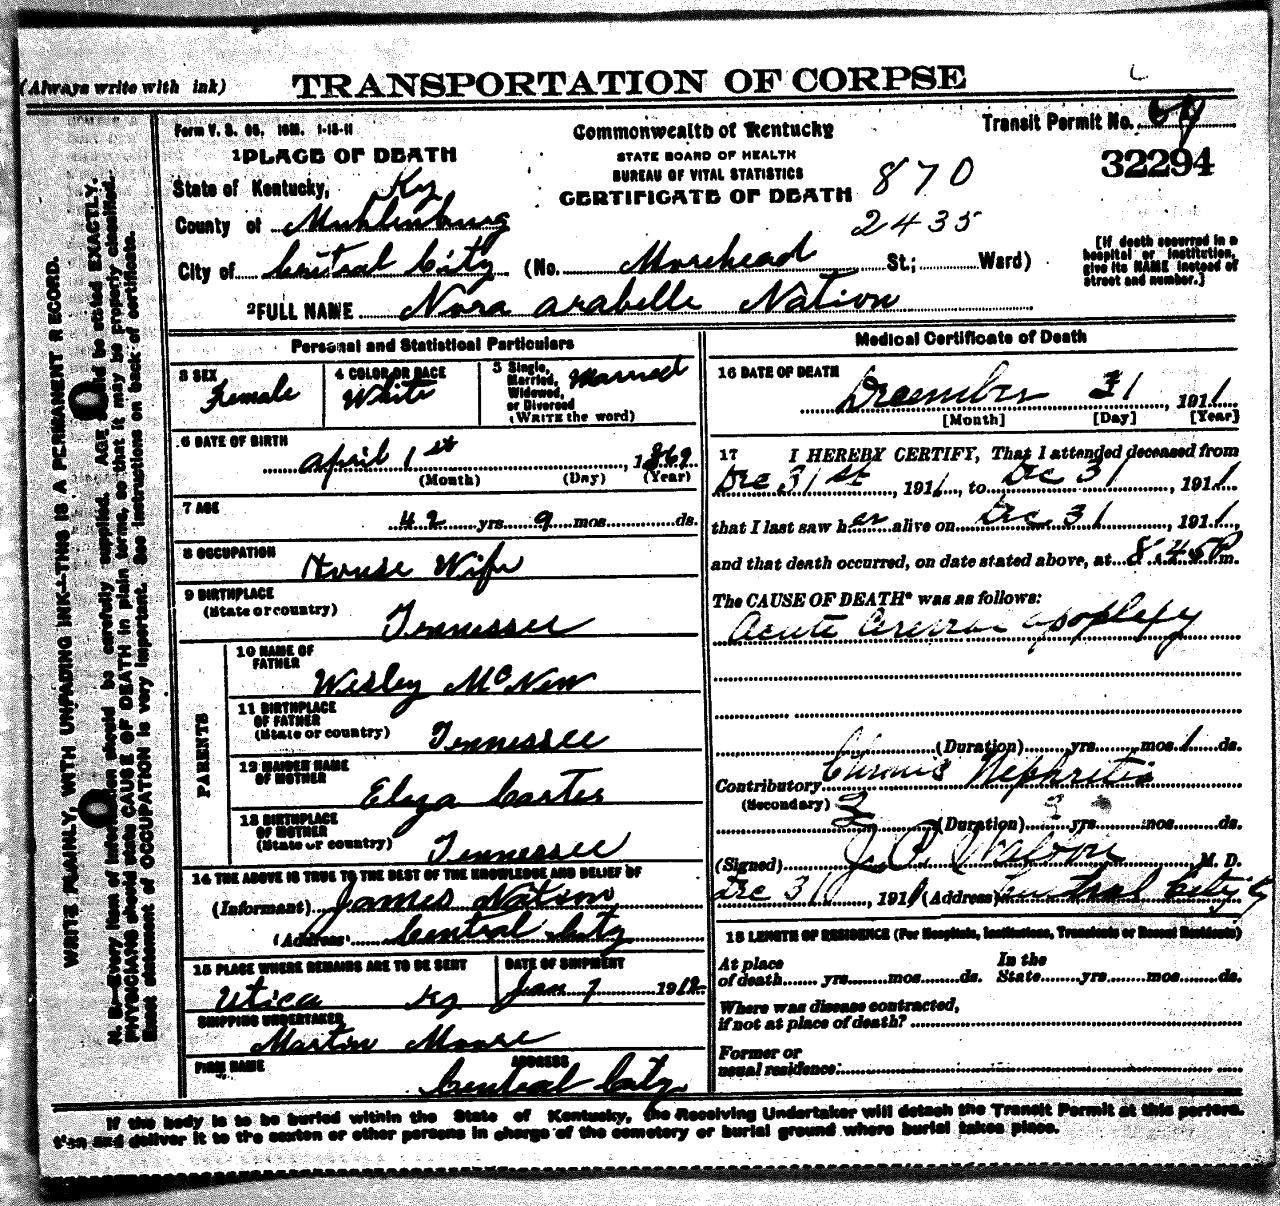 (Always write with ink)
TRANSPORTATION OF CORPSE
Form V. S. 1-15-11
Commonwealth of Kentucky
Transit Permit No.
1 PLACE OF DEATH
STATE BOARD OF HEALTH
BUREAU OF VITAL STATISTICS
CERTIFICATE OF DEATH
870
2435
32294
State of Kentucky, Ky
County of Muhlenburg
City of Central City (No. Morehead St.; Ward)
[If death occurred in a hospital or institution, give its NAME instead of street and number.]
2 FULL NAME Nora Arabelle Nation
Personal and Statistical Particulars
3 SEX Female
4 COLOR OR RACE White
5 Single, Married, Widowed, or Divorced (WRITE the word) Married
6 DATE OF BIRTH
April 1st, 1869
(Month) (Day) (Year)
7 AGE
42 yrs 9 mos ds.
8 OCCUPATION House Wife
9 BIRTHPLACE
(State or country) Tennessee
PARENTS
10 NAME OF FATHER Wesley McNew
11 BIRTHPLACE OF FATHER (State or country) Tennessee
12 MAIDEN NAME OF MOTHER Eliza Carter
13 BIRTHPLACE OF MOTHER (State or country) Tennessee
14 THE ABOVE IS TRUE TO THE BEST OF THE KNOWLEDGE AND BELIEF OF
(Informant) James Nation
(Address) Central City
15 PLACE WHERE REMAINS ARE TO BE SENT
Utica Ky
DATE OF SHIPMENT
Jan 1 1912
SHIPPING UNDERTAKER
Martin Moore
FIRM NAME
ADDRESS
Central City
Medical Certificate of Death
16 DATE OF DEATH
December 31, 1911
[Month] [Day] [Year]
17 I HEREBY CERTIFY, That I attended deceased from
Dec 31st, 1911, to Dec 31, 1911,
that I last saw her alive on Dec 31, 1911,
and that death occurred, on date stated above, at 8.45 P m.
The CAUSE OF DEATH* was as follows:
Acute Cerebral apoplexy
(Duration) yrs. mos. 1 ds.
Contributory Chronic Nephritis
(Secondary)
(Duration) yrs. mos. ds.
(Signed) J. P. M. D.
Dec 31, 1911 (Address) Central City Ky
18 LENGTH OF RESIDENCE (For Hospitals, Institutions, Transients or Recent Residents)
At place of death yrs. mos. ds. In the State yrs. mos. ds.
Where was disease contracted,
if not at place of death?
Former or
usual residence:
If the body is to be buried within the State of Kentucky, the Receiving Undertaker will detach the Transit Permit at this perfora-
tion and deliver it to the sexton or other persons in charge of the cemetery or burial ground where burial takes place.
WRITE PLAINLY, WITH UNFADING INK—THIS IS A PERMANENT RECORD.
N. B.—Every item of information should be carefully supplied. AGE should be stated EXACTLY.
PHYSICIANS should state CAUSE OF DEATH in plain terms, so that it may be properly classified.
Exact statement of OCCUPATION is very important. See instructions on back of certificate.